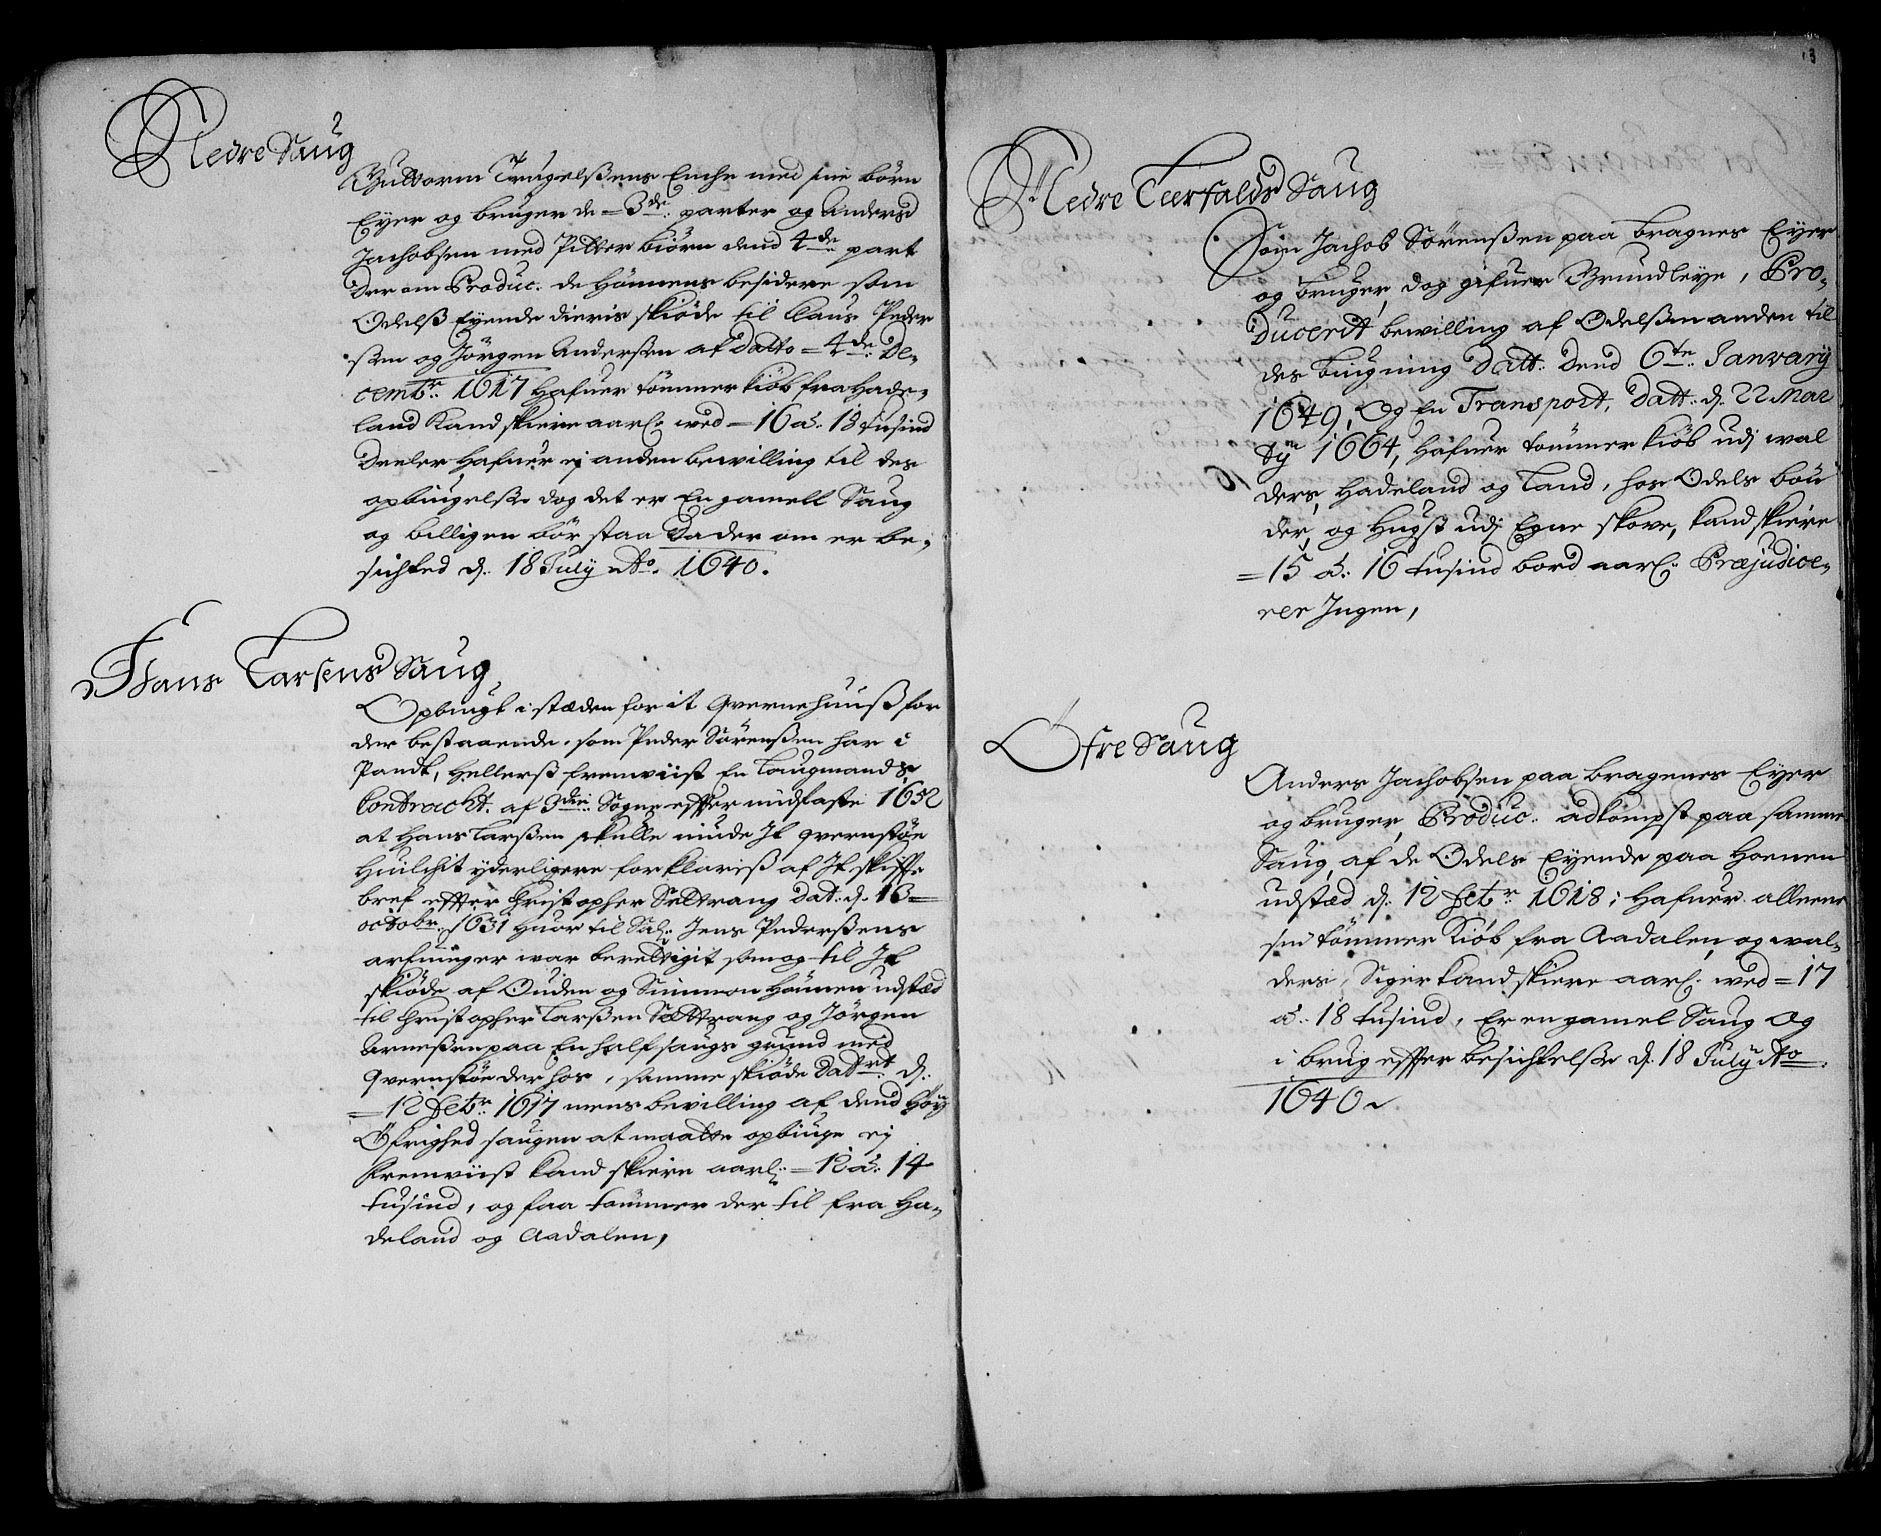 Nedre Saug
Guttorm Trugelßens Enche med sine börn
Eÿer og bruger de = 3de: parter og Anders
Jachobsen med Pitter biörn dend 4de part
Der om Produc: de Hönnens besidere som
Odelß Eyende dieris skiöde til Claus Peder
sen og Jörgen Andersen af Datto = 4de: De-
cembr: 1617 Hafuer tömmer kiöb fra Hade-
land Kand skiere aarl: wed = 16 a: 18 tusind
Deeler Hafuer ej anden bewilling til des
opbÿugelse dog det er En gamell Saug
og billigen bör staa Da der om er be-
sichted d: 18 July Ao. 1640.
Hans Larsens Saug,
Opbÿugt i stæden for it qvernehuuß for
der bestaaende. som Peder Sörenßen har i
Pandt, Hellerß fremviist En Laugmands
Contracht. af 3die: Sogne effter midfaste 1652
at Hans Larßen skulle niude It qvernstöe
Huilchit yderligere forklariß af It skiffte
bref effter Christopher Settrang Dat: d. 16 =
octobr: 1631 Huor til Sal: Jens Pederßens
arfuinger war berettigit som og til It
skiöde af Ouden og Simmon Hönnen udstæd
til Christopher Larßen Settrang og Jörgen
Arneßen paa En half saugs grund med
Qvernstöe der hos, samme skiöde Dattrt: d:
= 12 Febr: 1617 mens bevilling af dend Höy
Öfrighed saugen at maatte opbiuge ej
fremviist kand skiere aarl: = 12 a: 14
tusind, og faa tömmer der til fra Ha-
deland og Aadalen,
13
Nedre Tierfalds Saug
Som Jachob Sörenßen paa Bragnes Eÿer
og bruger, dog gifuer Grundleye, Pro-
ducerit bewilling af Odelßmanden til
des bÿugning Datt: Dend 6te: Janvarij
1649, Og En Transport, Datt: d: 22 Mar
tÿ 1664, Hafuer tömmer kiöb udj wal
ders, Hadeland og Land, hos Odels bön
der, og Hugst udj Egne skove, kand skiere
= 15 a: 16 tusind bord aarl: Præjudice-
rer Ingen,
Ofre Saug
Anders Jachobsen paa Bragenes Eÿer
og bruger, Produc: adkompst paa samme
Saug, af de Odels Eyende paa Hoenen
udstæd d: 12 Febr 1618; Hafuer alleene
sin tömmer Kiöb fra Aadalen, og wal-
ders, Siger kand skiere aarl: wed = 17
a: 18 tusind, Er en gamel Saug Og
i brug effter besichtelße d: 18 July Ao
1640